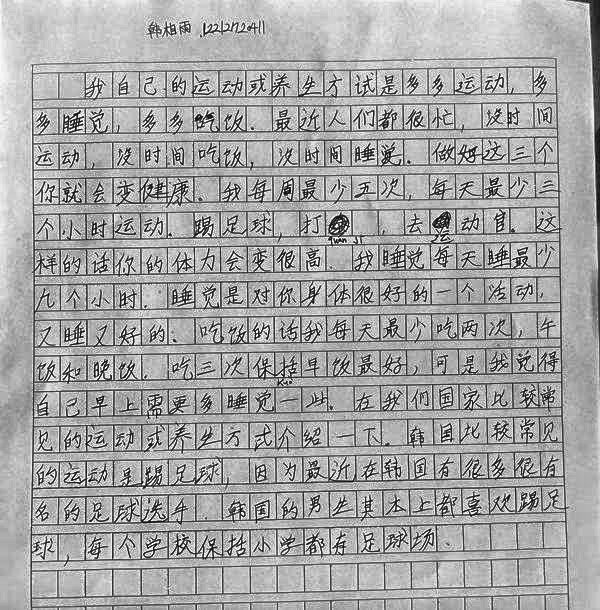 韩相雨 12212720411
我自己的运动或养生方试是多多运动，多
多睡觉，多多吃饭．最近人们都很忙，没时间
运动，没时间吃饭，没时间睡觉．做好这三个
你就会变健康．我每周最少五次，每天最少三
个小时运动．踢足球，打，去运动官．这
quan ji
样的话你的体力会变很高．我睡觉每天睡最少
九个小时．睡觉是对你身体很好的一个活动，
又睡又好的．吃饭的话我每天最少吃两次，午
饭和晚饭．吃三次保括早饭最好，可是我觉得
自己早上需要多睡觉一些．在我们国家比较常
见的运动或养生方式介绍一下．韩国比较常见
的运动是踢足球，因为最近在韩国有很多很有
名的足球选手．韩国的男生其本上都喜欢踢足
球，每个学校保括小学都有足球场．